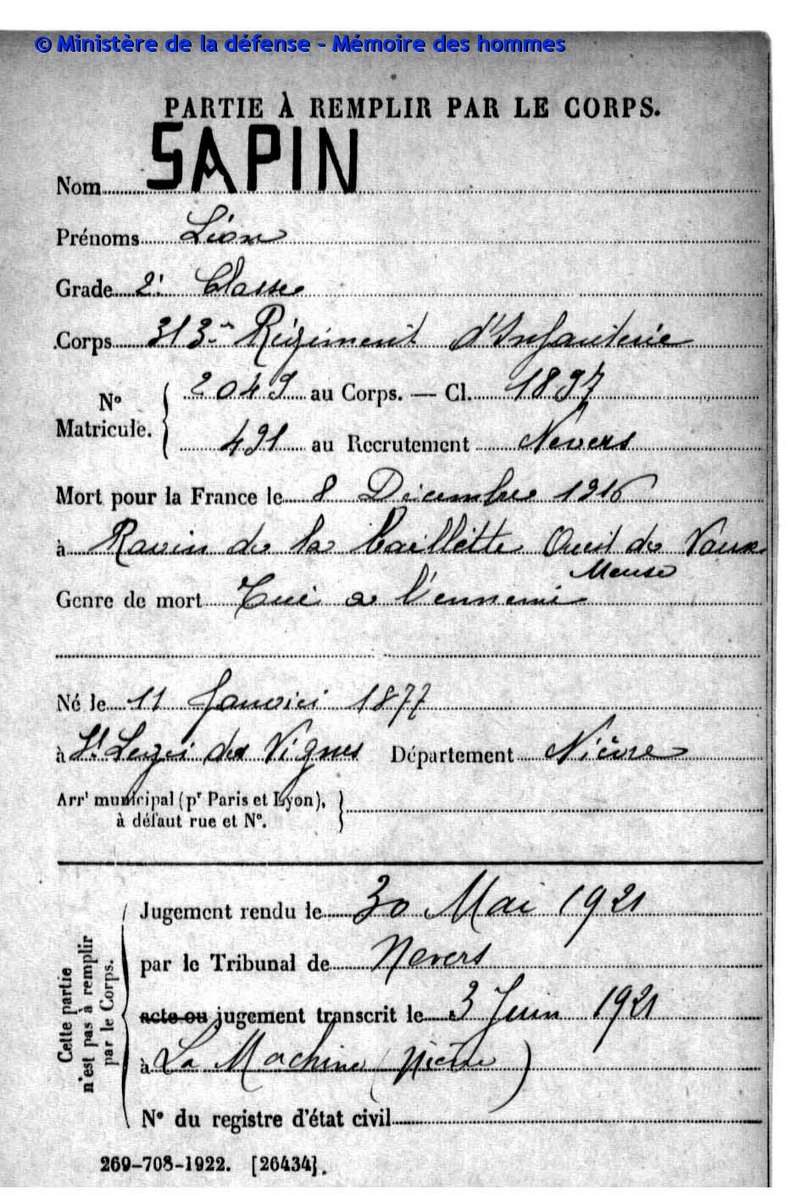 © Ministère de la défense - Mémoire des hommes
PARTIE À REMPLIR PAR LE CORPS.
Nom SAPIN
Prénoms Léon
Grade 2e Classe
Corps 313me Régiment d'Infanterie
No Matricule. { 2049 au Corps. — Cl. 1897
491 au Recrutement Nevers
Mort pour la France le 8 Décembre 1916
à Ravin de la Caillette Ouest de Vaux
Meuse
Genre de mort Tué à l'ennemi
Né le 11 Janvier 1877
à St Leger des Vignes Département Nièvre
Arrt municipal (pr Paris et Lyon), }
à défaut rue et No.
Cette partie n'est pas à remplir par le Corps.
Jugement rendu le 30 Mai 1921
par le Tribunal de Nevers
acte ou jugement transcrit le 3 Juin 1921
à La Machine (Nièvre)
No du registre d'état civil
269-708-1922. [26434].